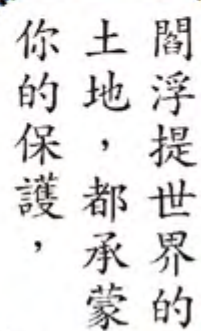 閻浮提世界的
土地，都承蒙
你的保護，